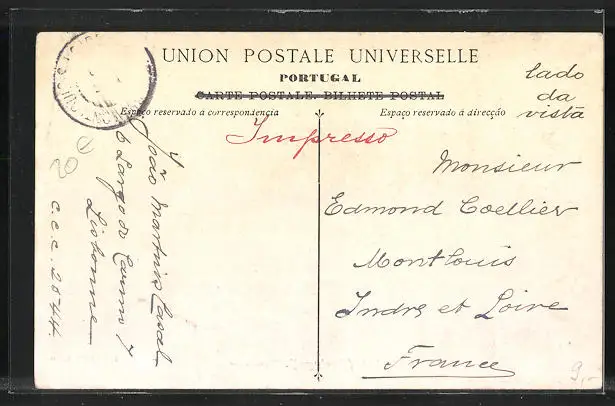 UNION POSTALE UNIVERSELLE
PORTUGAL
CARTE POSTALE. BILHETE POSTAL
Espaço reservado á correspondencia
Espaço reservado á direcção
lado
da
vista
Impresso
Monsieur
Edmond Coellier
Montlouis
Indre et Loire
France
João Martins Casal
6 Largo do Carmo 7
Lisbonne
C.C.C. 2544
9,-